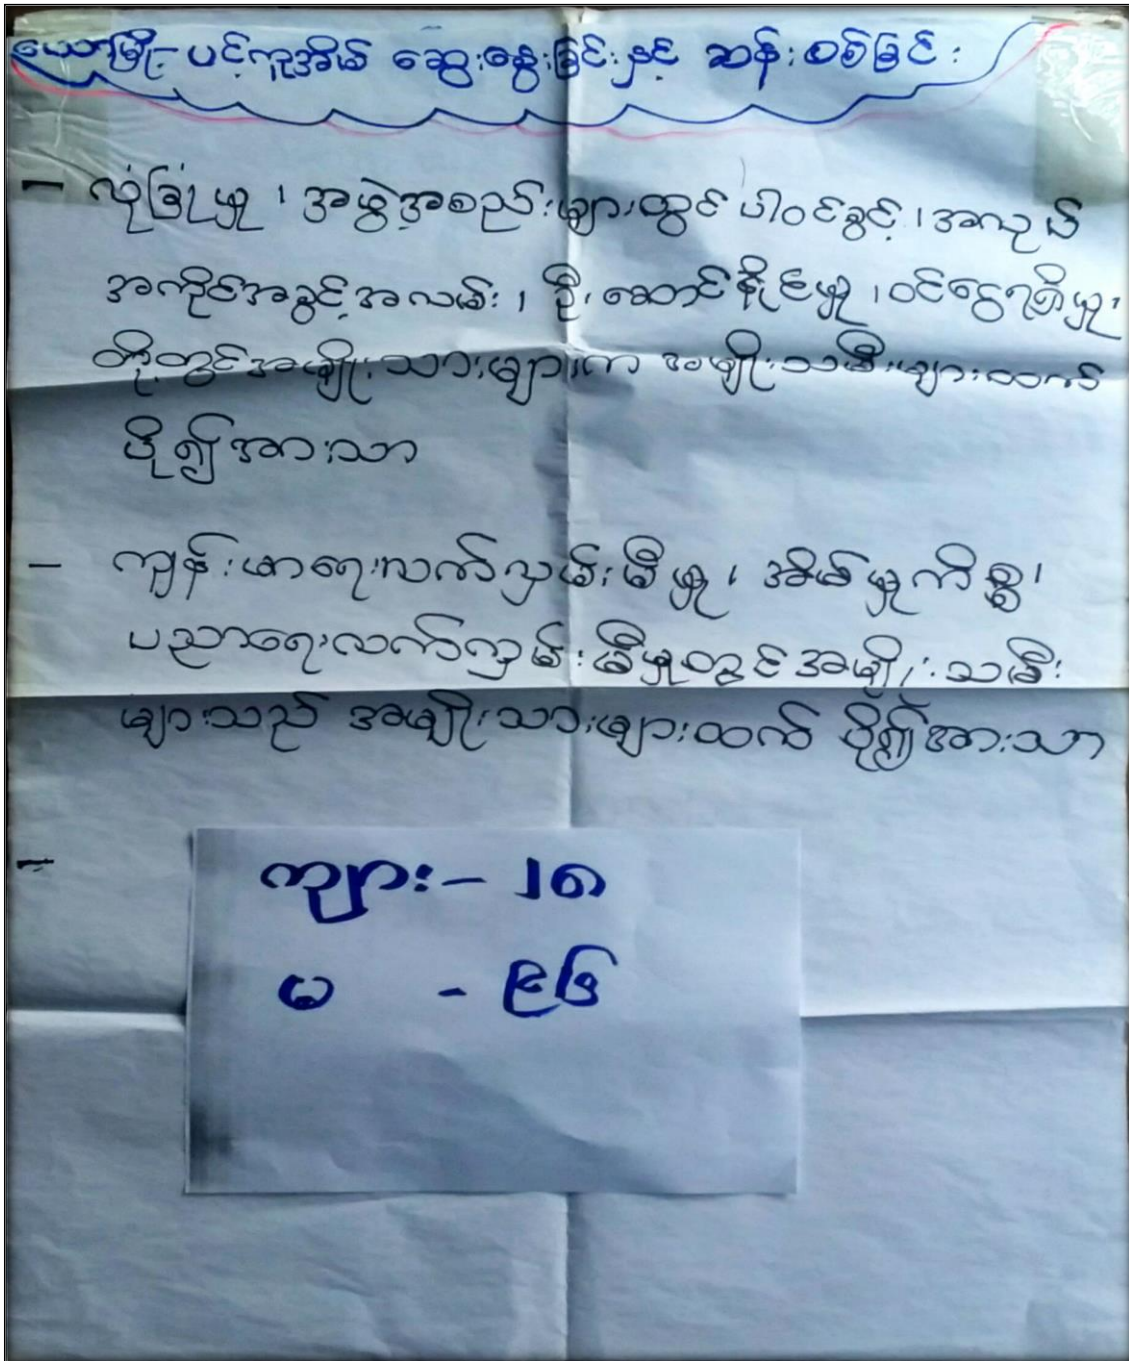 ယောမြို့- ပင့်ကူအိမ် ဆွေးနွေးခြင်းနှင့် ဆန်းစစ်ခြင်း
- လုံခြုံမှု ၊ အဖွဲ့အစည်းများတွင် ပါဝင်ခွင့် ၊ အလုပ်
အကိုင်အခွင့်အလမ်း ၊ ဦးဆောင်နိုင်မှု ၊ ဝင်ငွေရရှိမှု ၊
တို့တွင်အမျိုးသားများက အမျိုးသမီးများထက်
ပို၍အားသာ
- ကျန်းမာရေးလက်လှမ်းမီမှု ၊ အိမ်မှုကိစ္စ ၊
ပညာရေးလက်လှမ်းမီမှုတွင်အမျိုးသမီး
များသည် အမျိုးသားများထက် ပို၍အားသာ
-
ကျား - ၂၈
မ -